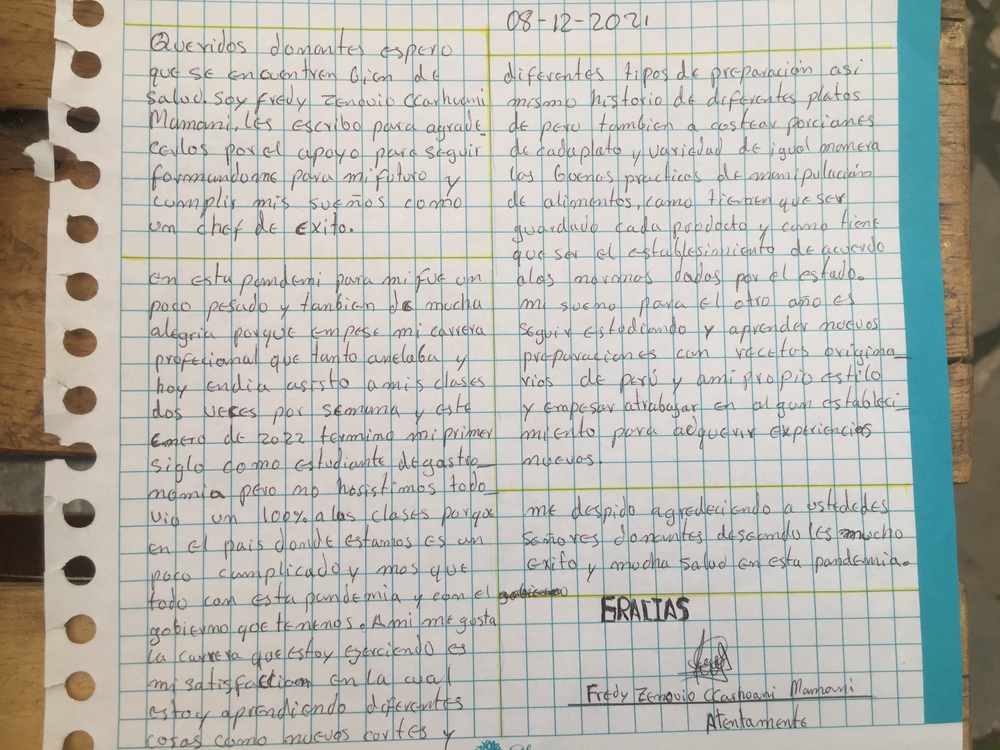 08-12-2021
Queridos donantes espero
que se encuentren bien de
salud. soy fredy Zenovio Ccarhuani
Mamani, les escribo para agrade
cerlos por el apoyo para seguir
formandome para mi futuro y
cumplir mis sueños como
un chef de exito.
en esta pandemi para mi fue un
poco pesado y tanbien de mucha
alegria porque empese mi carrera
profecional que tanto anelaba y
hoy endia asisto a mis clases
dos veces por semana y este
enero de 2022 termino mi primer
siglo como estudiante de gastro_
nomia pero no hasistimos todo_
via un 100% a las clases porque
en el pais donde estamos es un
poco cumplicado y mas que
todo con esta pandemia y con el
gobierno que tenemos. Ami me gusta
la carrera que estoy ejerciendo es
mi satisfaccion en la cual
estoy aprendiendo diferentes
cosas como nuevos cortes y
diferentes tipos de preparación asi
mismo historio de diferentes platos
de pero tambien a costear porciones
de cada plato y variedad de igual manera
las buenas practicas de manipulación
de alimentos, como tienen que ser
guardado cada producto y como tiene
que ser el establesimiento de acuerdo
alas normas dadas por el estado.
mi sueño para el otro año es
seguir estudiando y aprender nuevos
preparaciones con recetas origina_
rios de perú y ami propio estilo
y empesar atrabajar en algun estableci_
miento para adquerir experiencias
nuevos.
me despido agredeciendo a ustedes
señores donantes deseando les mucho
exito y mucha salud en esta pandemia.
GRACIAS
Fredy Zenovio Ccarhuani Mamani
Atentamente